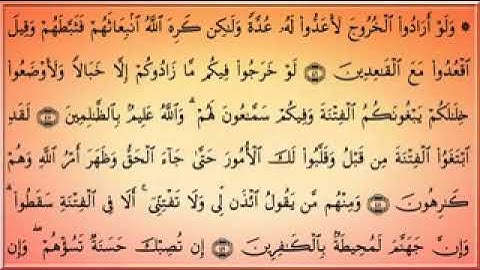 ۞ وَلَوْ أَرَادُوا۟ ٱلْخُرُوجَ لَأَعَدُّوا۟ لَهُۥ عُدَّةً وَلَٰكِن كَرِهَ ٱللَّهُ ٱنۢبِعَاثَهُمْ فَثَبَّطَهُمْ وَقِيلَ
ٱقْعُدُوا۟ مَعَ ٱلْقَٰعِدِينَ ۝ لَوْ خَرَجُوا۟ فِيكُم مَّا زَادُوكُمْ إِلَّا خَبَالًا وَلَأَوْضَعُوا۟
خِلَٰلَكُمْ يَبْغُونَكُمُ ٱلْفِتْنَةَ وَفِيكُمْ سَمَّٰعُونَ لَهُمْ ۗ وَٱللَّهُ عَلِيمٌۢ بِٱلظَّٰلِمِينَ ۝ لَقَدِ
ٱبْتَغَوُا۟ ٱلْفِتْنَةَ مِن قَبْلُ وَقَلَّبُوا۟ لَكَ ٱلْأُمُورَ حَتَّىٰ جَآءَ ٱلْحَقُّ وَظَهَرَ أَمْرُ ٱللَّهِ وَهُمْ
كَٰرِهُونَ ۝ وَمِنْهُم مَّن يَقُولُ ٱئْذَن لِّى وَلَا تَفْتِنِّىٓ ۚ أَلَا فِى ٱلْفِتْنَةِ سَقَطُوا۟ ۗ
وَإِنَّ جَهَنَّمَ لَمُحِيطَةٌۢ بِٱلْكَٰفِرِينَ ۝ إِن تُصِبْكَ حَسَنَةٌ تَسُؤْهُمْ ۖ وَإِن